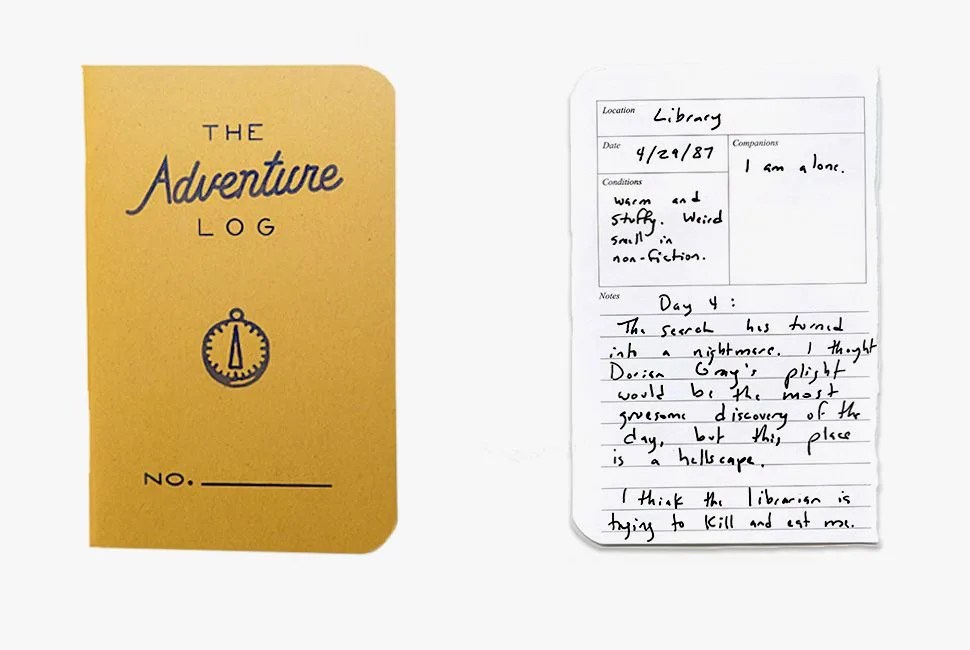 THE
Adventure
LOG
NO.
Location Library
Date 4/29/87
Companions
I am alone.
Conditions
warm and
stuffy. Weird
smell in
non-fiction.
Notes Day 4:
The search has turned
into a nightmare. I thought
Dorian Gray's plight
would be the most
gruesome discovery of the
day, but this place
is a hellscape.
I think the librarian is
trying to kill and eat me.